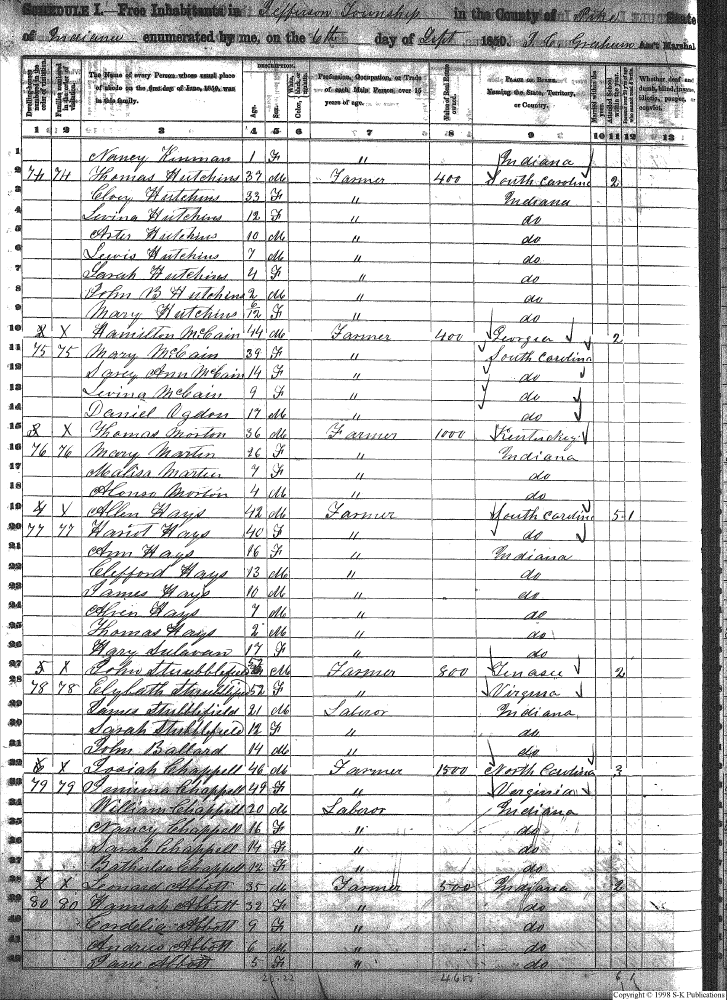 SCHEDULE I.—Free Inhabitants in Jefferson Township in the County of Pike State
of Indiana enumerated by me, on the 6th day of Sept 1850. J C Graham Ass't Marshal
DESCRIPTION.
Dwelling-houses numbered in the order of visitation. Families numbered in the order of visitation. The Name of every Person whose usual place of abode on the first day of June, 1850, was in this family. Age. Sex. White, black, or mulatto. Color, Profession, Occupation, or Trade of each Male Person over 15 years of age. Value of Real Estate owned. PLACE OF BIRTH. Naming the State, Territory, or Country. Married within the year. Attended School within the year. Whether deaf and dumb, blind, insane, idiotic, pauper, or convict.
1 2 3 4 5 6 7 8 9 10 11 12 13
1 Nancy Kinman 1 F " Indiana
2 74 74 Thomas Hutchins 37 M Farmer 400 South Carolina 2
3 Hutchins 33 F " Indiana
4 Levina Hutchins 12 F " do
5 Hutchins 10 M " do
6 Lewis Hutchins 7 M " do
7 Sarah Hutchins 4 F " do
8 John B Hutchins 2 M " do
9 Mary Hutchins 6/12 F " do
10 X X Hamilton McCain 44 M Farmer 400 Georgea 2
11 75 75 Mary McCain 39 F " South Carolina
12 Ann McCain 14 F " do
13 Levina McCain 9 F " do
14 Daniel Ogdon 17 M " do
15 X Thomas Morton 36 M Farmer 1000 Kentuckey
16 76 76 Mary Martin 26 F " Indiana
17 Malisa Martin 7 F " do
18 Alonso Morton 4 M " do
19 X Allen Hays 42 M Farmer South Carolina 5 1
20 77 77 Hariot Hays 40 F " do
21 Ann Hays 16 F " Indiana
22 Clefford Hays 13 M " do
23 James Hays 10 M " do
24 Hays 7 M " do
25 Thomas Hays 2 M " do
26 Mary Sulavan 17 F " do
27 X John Strubblefield 52 M Farmer 800 Tenasee 2
28 78 78 52 F " Virginia
29 James Stubblefield 21 M Laboror Indiana
30 Sarah Stubblefield 12 F " do
31 John Ballard 14 M " do
32 X Josiah Chappell 46 M Farmer 1500 North Carolina 3
33 79 79 Chappell 49 F " Virginia
34 William Chappell 20 M Laboror Indiana
35 Nancy Chappell 16 F " do
36 Sarah Chappell 14 F " do
37 Chappell 12 F " do
38 X Leonard Abbott 35 M Farmer 500 Indiana 2
39 80 80 Hannah Abbott 33 F " do
40 Cordelia Abbott 9 F " do
41 Andrew Abbott 6 M " do
42 Jane Abbott 5 F " do
4600
Copyright © 1998 S-K Publications